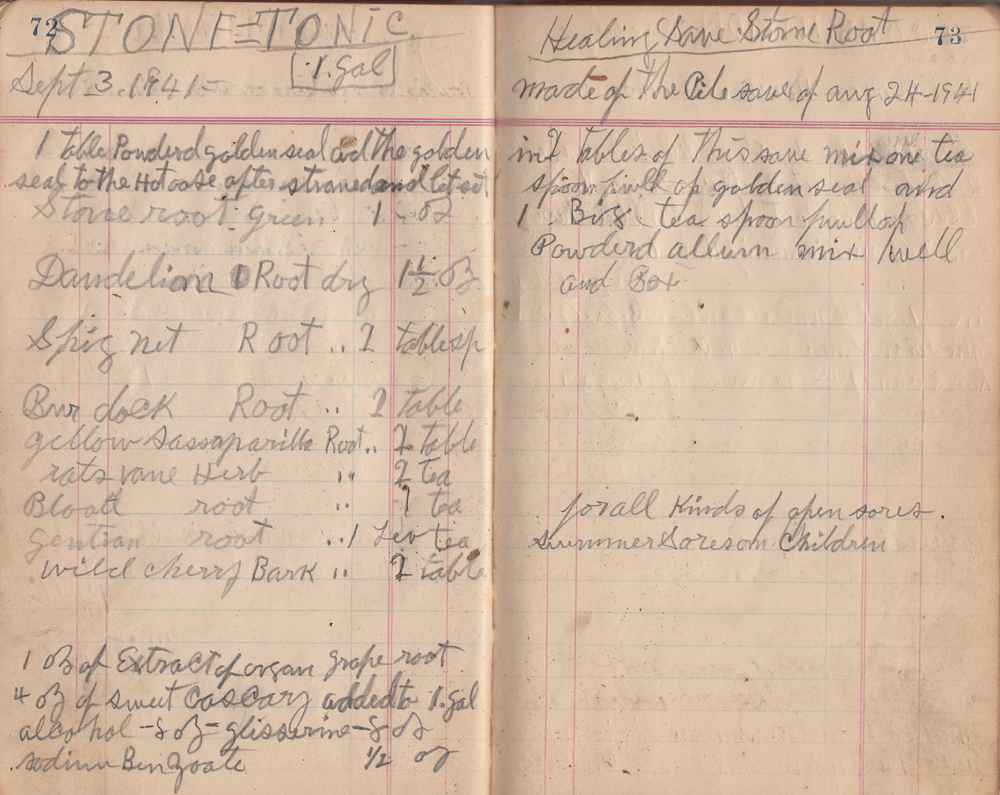 72
STONE=TONIC
1.gal
Sept 3.1941-
1 table Powderd golden seal add the golden
seal to the Hot oose after straned and let set
Stone root green 1 - oz
Dandelion Root dry 1 1/2 oz
Spig net Root .. 2 tablesp
Bur dock Root .. 2 table
yellow Sassaparilla Root .. 2 table
rats vane Herb " 2 tea
Bloatt root " 1 tea
gentian root .. 1 Lev tea
wild cherry Bark " 2 table
1 oz of Extract of organ grape root
4 oz of sweet Cascary added to 1.gal
alcohol - 8 oz = glisserine - 8 oz
sodium Benzoate 1/2 oz
Healing Save Stone Root
73
made of the Pile save of aug 24-1941
in 2 tables of This save mix one tea
spoon full of golden seal and
1 Big tea spoon full of
Powderd allum mix well
and Box
for all Kinds of open sores.
summer Sores on Children